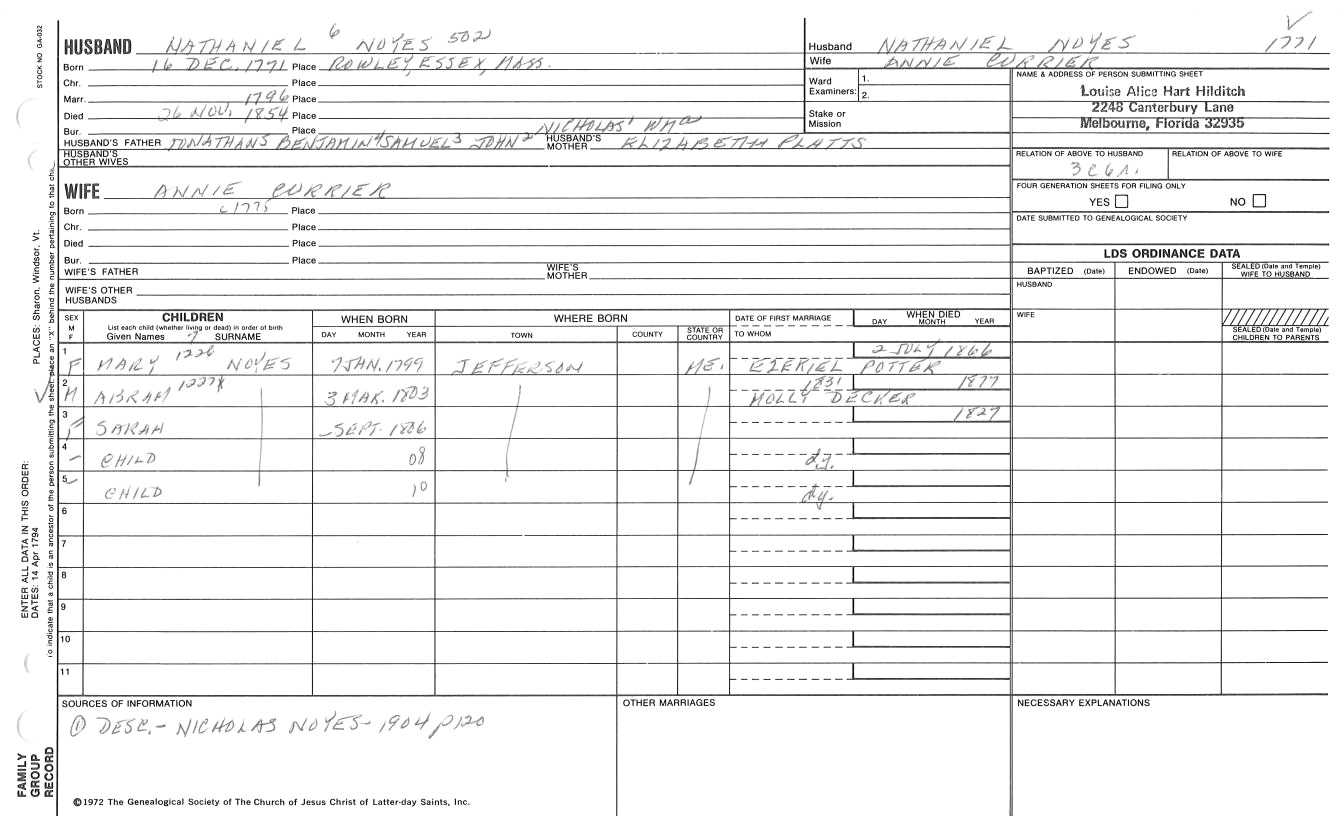 STOCK NO. GA-032
HUSBAND NATHANIEL 6 NOYES 502
Born 16 DEC. 1771 Place ROWLEY, ESSEX, MASS.
Chr. Place
Marr. 1796 Place
Died 26 NOV. 1854 Place
Bur. Place
NICHOLAS1 WMa
HUSBAND'S FATHER JONATHAN5 BENJAMIN4 SAMUEL3 JOHN2 HUSBAND'S MOTHER ELIZABETH PLATTS
HUSBAND'S OTHER WIVES
Husband NATHANIEL NOYES 1771
Wife ANNIE CURRIER
Ward Examiners: 1.
2.
Stake or Mission
NAME & ADDRESS OF PERSON SUBMITTING SHEET
Louise Alice Hart Hilditch
2248 Canterbury Lane
Melbourne, Florida 32935
RELATION OF ABOVE TO HUSBAND RELATION OF ABOVE TO WIFE
3C6R.
FOUR GENERATION SHEETS FOR FILING ONLY
YES NO
DATE SUBMITTED TO GENEALOGICAL SOCIETY
WIFE ANNIE CURRIER
Born c1775 Place
Chr. Place
Died Place
Bur. Place
WIFE'S FATHER WIFE'S MOTHER
WIFE'S OTHER HUSBANDS
LDS ORDINANCE DATA
BAPTIZED (Date) ENDOWED (Date) SEALED (Date and Temple) WIFE TO HUSBAND
HUSBAND
WIFE
SEALED (Date and Temple) CHILDREN TO PARENTS
SEX M F
CHILDREN
List each child (whether living or dead) in order of birth
Given Names 7 SURNAME
WHEN BORN
DAY MONTH YEAR
WHERE BORN
TOWN COUNTY STATE OR COUNTRY
DATE OF FIRST MARRIAGE
TO WHOM
WHEN DIED
DAY MONTH YEAR
2 JULY 1866
1 F MARY 1226 NOYES 7 JAN. 1799 JEFFERSON ME. EZEKIEL POTTER
1831 1877
2 M ABRAM 1227X 3 MAR. 1803 MOLLY DECKER
1827
3 F SARAH –SEPT. 1806
4 – CHILD 08 d.y.
5 – CHILD 10 dy.
6
7
8
9
10
11
SOURCES OF INFORMATION
① DESC. – NICHOLAS NOYES – 1904 p120
OTHER MARRIAGES
NECESSARY EXPLANATIONS
©1972 The Genealogical Society of The Church of Jesus Christ of Latter-day Saints, Inc.
FAMILY GROUP RECORD
ENTER ALL DATA IN THIS ORDER:
DATES: 14 Apr 1794
PLACES: Sharon, Windsor, Vt.
To indicate that a child is an ancestor of the person submitting the sheet, place an "X" behind the number pertaining to that